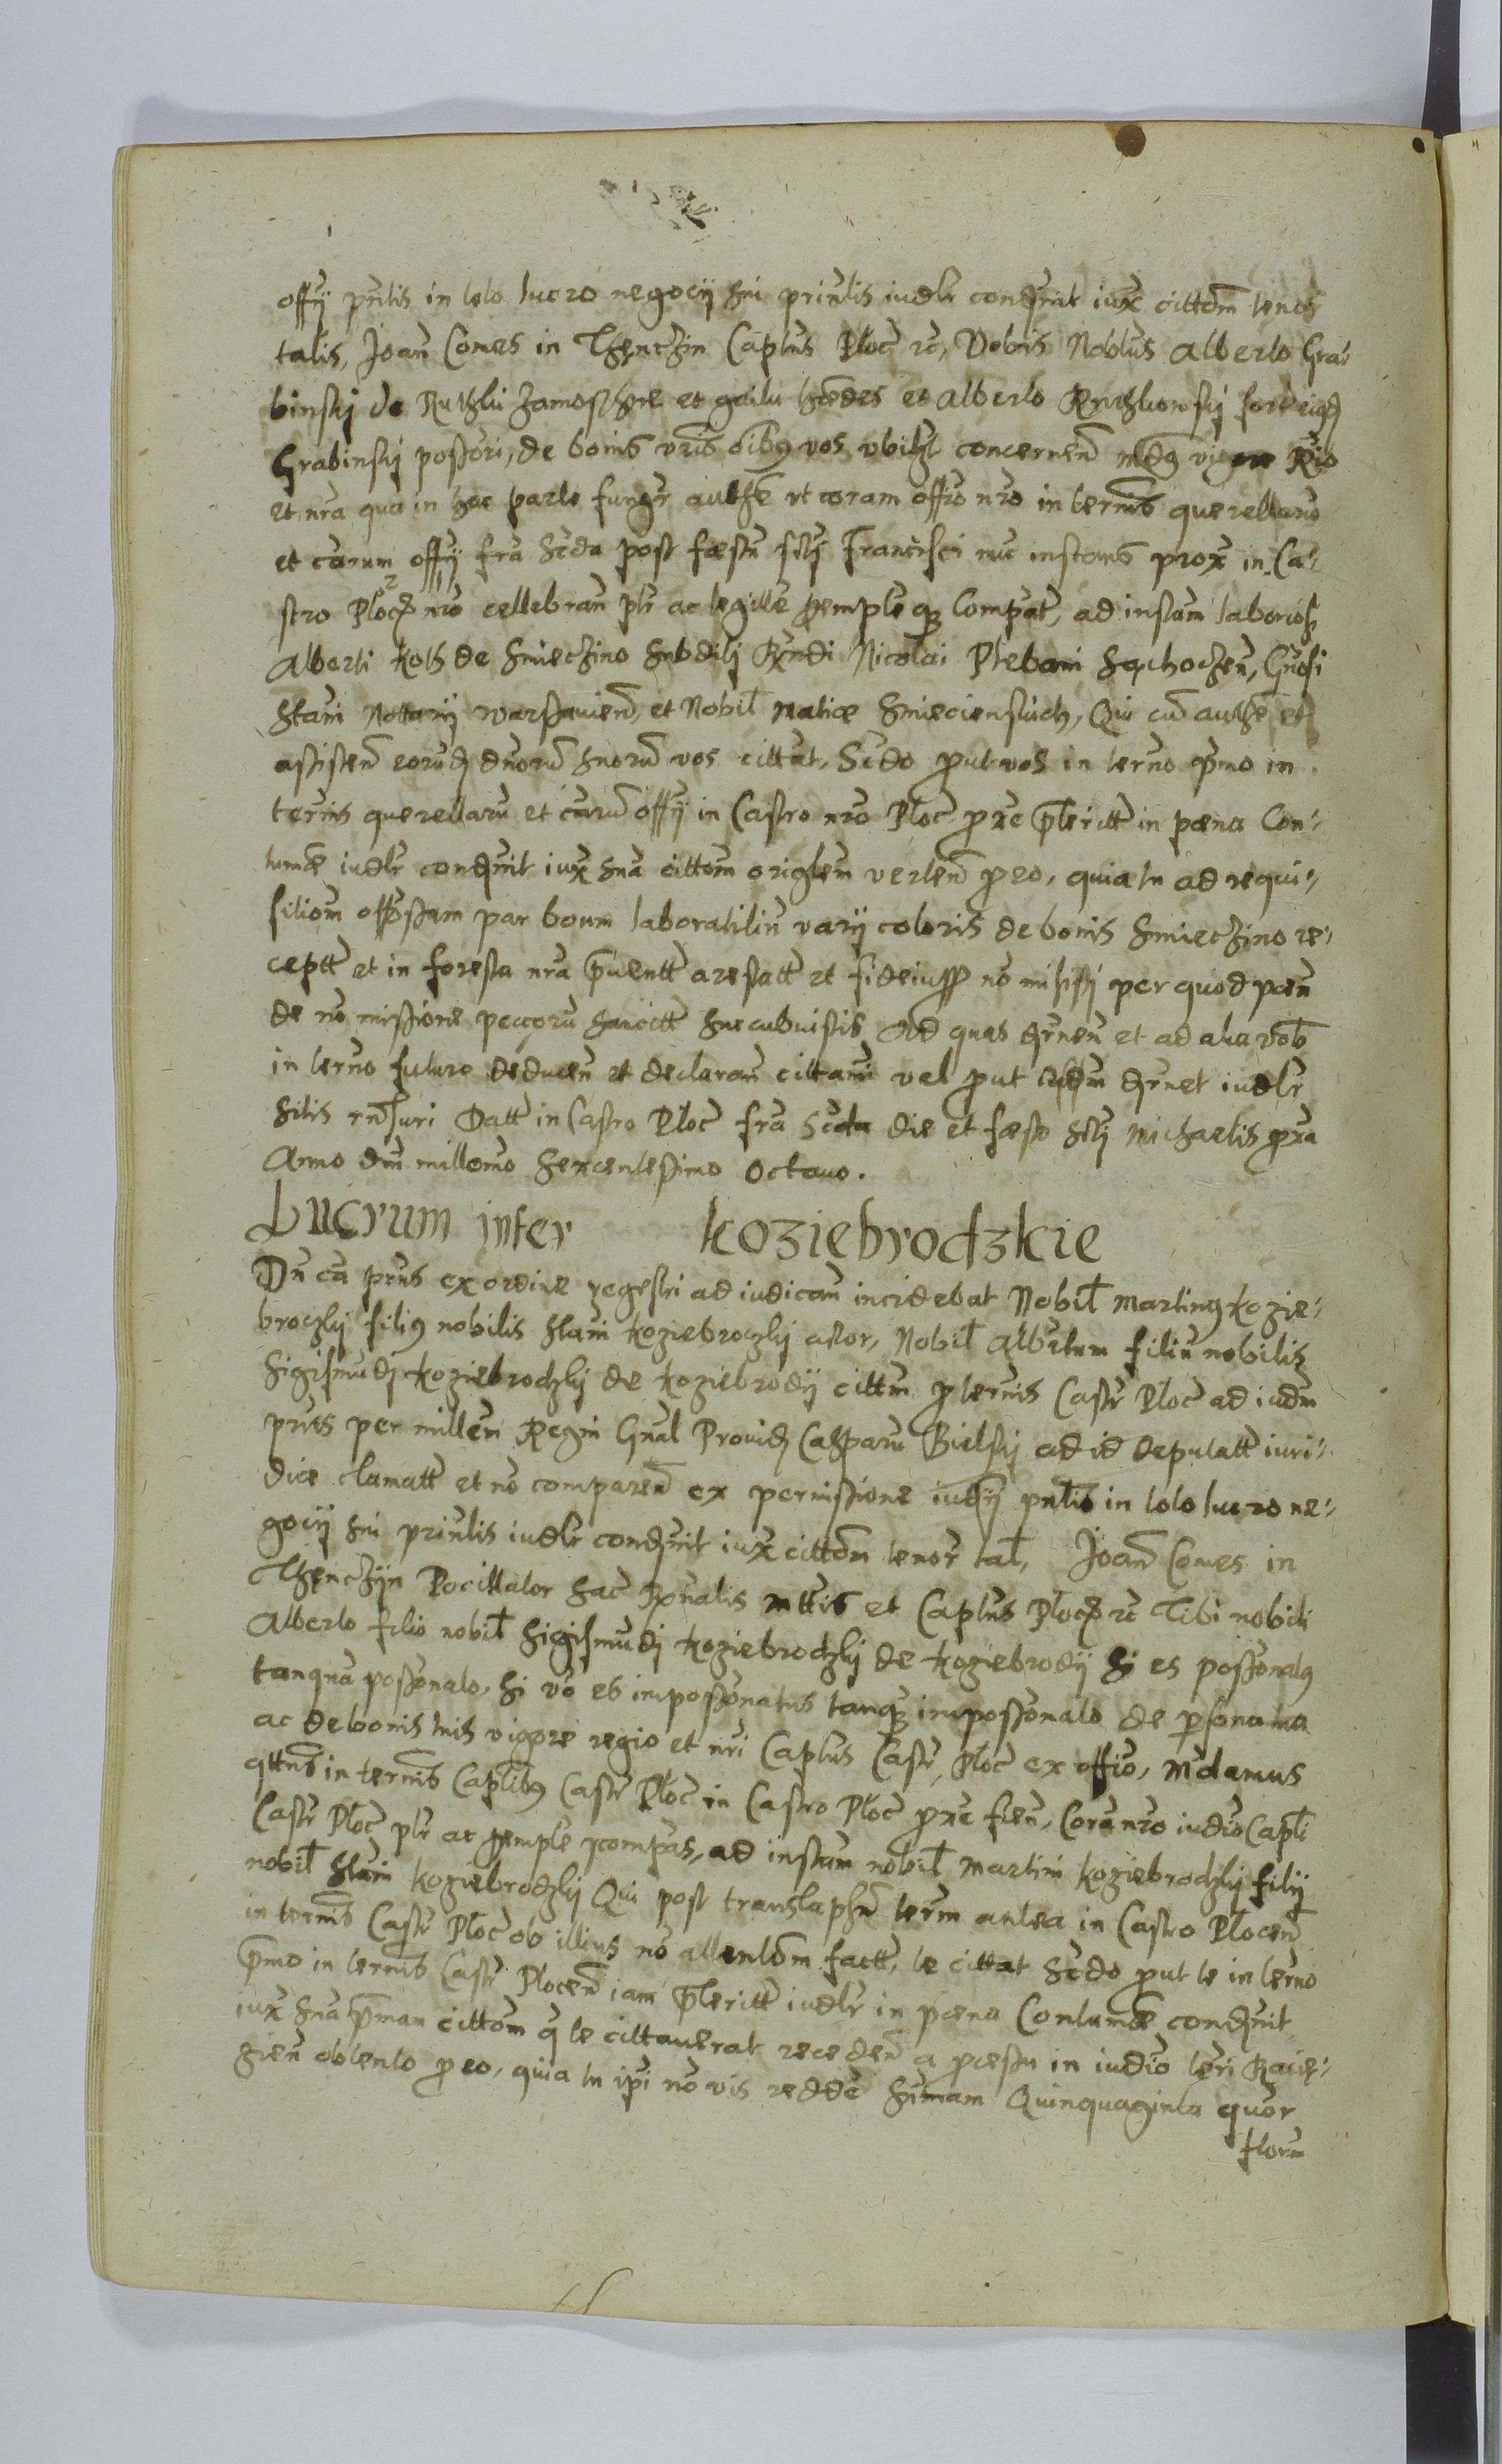 offij pntis in toto lucro negocij sui prinlis iudlr condnit iux cittom tenor
talis, Joan Comes in Thenczin Captus Ploc rc, Vobis Noblus Alberto Gra-
binskj de Ruthki Zamoschne et gailu hædes et Alberto Ruthkowskj
Grabinskj possori, de bonis vris oibq vos vbilzt concernen mdq vigore Rio
et nra qua in hac parte fungr authe vt coram offio nro in ternis querellaru
et carum offij fra scda post fæstu scti Francisci nuc instans prox in Ca-
stro Ploc nro cellebran plr ac legitte pemptle q Compat, ad instam laborios
Alberti Koth de Smieczino subditj Rxndi Nicolai Plebani Sąchoczen, Gnosi
Stani Nottarij Warssauien, et Nobil Matiæ Smieciensкich, Qui cu authe et
assisten eorud dnoru suoru vos cittat, Scdo put vos in terno pmo in
ternis querellaru et caru offij in Castro nro Ploc pxe pteritt in pœna Con-
tumæ iudlr condnit iux sua cittom origlem verten p eo, quia tu ad requi-
sitiom offosam par boum laboratiliu varij coloris de bonis Smieczino re-
ceptt et in foresta nra puentt arestatt et fideiuss no misisti per quod pœn
de no missione peccoru sancitt succubuistis Ad quas drnen et ad alia vob
in terno futuro deducen et declaran cittami vel put iusdm drnet iudlr
sitis rnsuri Datt in Castro Ploc fra scda die et fæsto scti Michaelis pxa
Anno dni millomo sexcentesimo octauo.
Lucrum inter Koziebrodzkie
Dn ca pns ex ordine regestri ad iudicam incidebat Nobil Martinq Kozie-
brodzkj filiq nobilis Stani Koziebrodzkj actor, Nobil Albertum filiu nobilis
Sigismudj Koziebrodzkj de Koziebrody cittm p ternis Castr Ploc ad iudm
pnts per millem Regni Gnal Prouid Casparu Bielskj ad id deputatt iuri-
dice clamatt et no comparen ex permissione iudij pntis in toto lucro ne-
gocij sui prinlis iudlr condnit iux cittom tenor tal, Joan Comes in
Thenczijn Pocillator Sac Rgnalis Mttis et Captus Ploc rc Tibi nobili
Alberto filio nobil Sigismudj Koziebrodzkj de Koziebrody si es possonatq
tanqua possonato, si vo es impossonatus tanq impossonato de psona tua
ac de bonis tuis vigore regio et nri Captus Castr Ploc ex offio, Mdamus
qttns in ternis Captlibq Castr Ploc in Castro Ploc pxe fien, Cora nro iudio Captli
Castr Ploc plr ac pemptle compas, ad instam nobil Martini Koziebrodzkj filij
nobil Stani Koziebrodzkj Qui post translapsu term antea in Castro Plocen
in ternis Castr Ploc ob illius no attentom factt, te cittat scdo put te in terno
pmo in ternis Castr Plocen iam pteritt iudlr in pœna Contumæ condnit
iux sua pmam cittom q te cittauerat receden a pcestu in iudio terri Racie-
gien obtento p eo, quia tu ipi no vis redde sumam Quinquaginta quor
floru